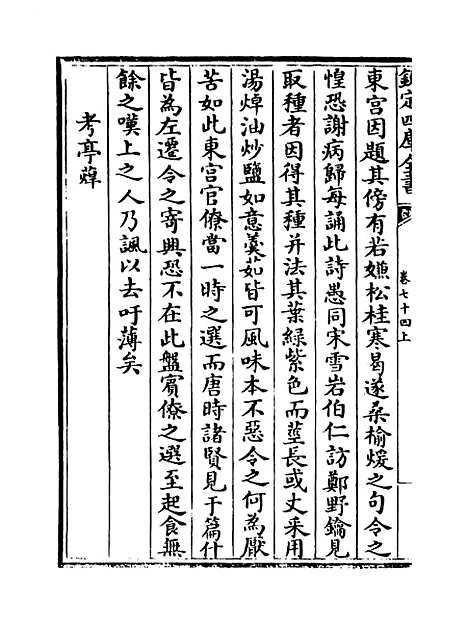 欽定四庫全書
卷七十四上
東宮因題其傍有若嫌松桂寒曷遂桑榆煖之句令之
惶恐謝病歸每誦此詩愚同宋雪岩伯仁訪鄭野鑰見
取種者因得其種并法其葉綠紫色而莖長或丈采用
湯焯油炒鹽如意羹茹皆可風味本不惡令之何為厭
苦如此東宮官僚當一時之選而唐時諸賢見于篇什
皆為左遷令之寄興恐不在此盤賓僚之選至起食無
餘之嘆上之人乃諷以去吁薄矣
考亭蔊